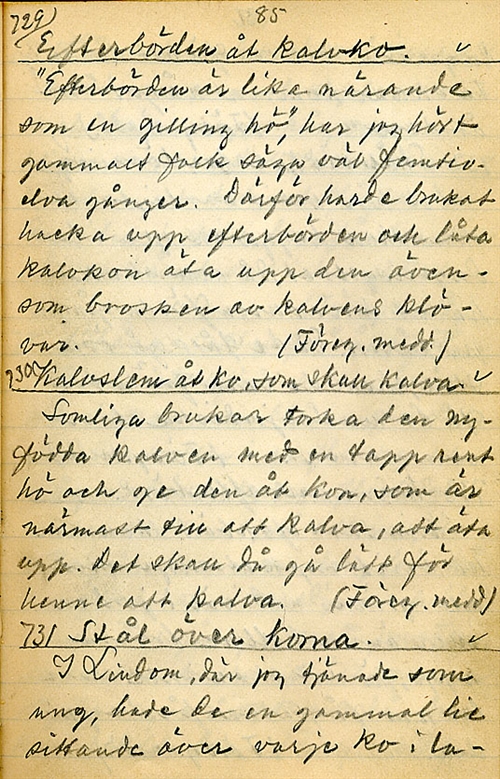 85
729) Efterbörden åt kalvko.
"Efterbörden är lika närande
som en gilling hö", har jag hört
gammalt folk säga väl femtio-
elva gånger. Därför har de brukat
hacka upp efterbörden och låta
kalvkon äta upp den även-
som brosken av kalvens klö-
var. (Föreg. medd.)
730) Kalvslem åt ko, som skall kalva.
Somliga brukar torka den ny-
födda kalven med en tapp rent
hö och ge den åt kon, som är
närmast till att kalva, att äta
upp. Det skall då gå lätt för
henne att kalva. (Föreg. medd)
731 Stål över korna.
I Lindom, där jag tjänade som
ung, hade de en gammal lie
sittande över varje ko i la-